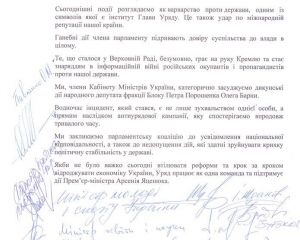 Сьогоднішні події розглядаємо як варварство проти держави, одним із
символів якої є інститут Глави Уряду. Це також удар по міжнародній
репутації нашої країни.
Ганебні дії члена парламенту підривають довіру суспільства до влади в
цілому.
Те, що сталося у Верховній Раді, безумовно, грає на руку Кремлю та стає
знаряддям в інформаційній війні російських окупантів і пропагандистів
проти нашої держави.
Ми, члени Кабінету Міністрів України, категорично засуджуємо дикунські
дії народного депутата фракції Блоку Петра Порошенка Олега Барни.
Водночас інцидент, який стався, є не лише зухвальством однієї особи, а
прямим наслідком антиурядової кампанії, яку спостерігаємо впродовж
тривалого часу.
Ми закликаємо парламентську коаліцію до усвідомлення національної
відповідальності, а також до недопущення дій, які здатні зруйнувати крихку
політичну стабільність у державі.
Якби не було важко сьогодні втілювати реформи та крок за кроком
відроджувати економіку України, Уряд працює як одна команда та підтримує
дії Прем'єр-міністра Арсенія Яценюка.
Міністр молоді
і спорту України
Міністр освіти і науки